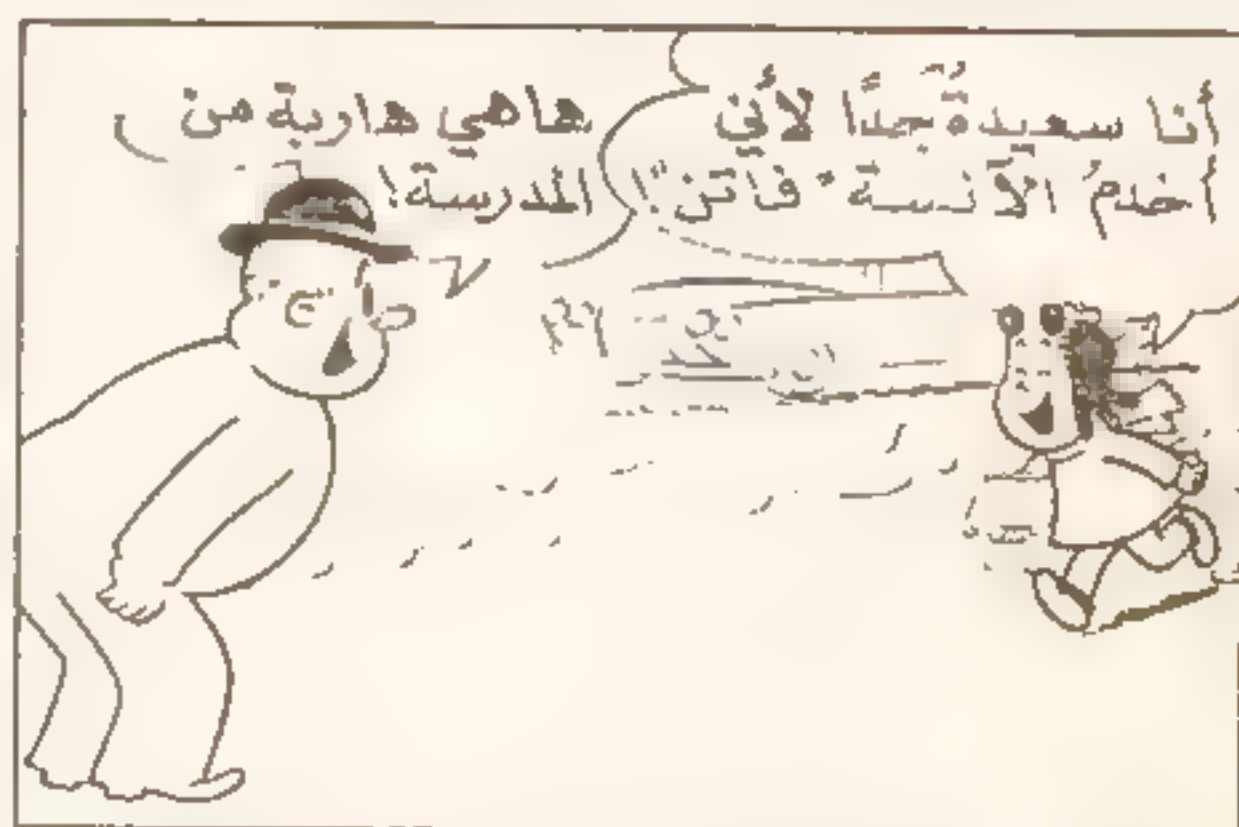 أنا سعيدةٌ جدًّا لأني
أخدمُ الآنسة "فاتن"!
هاهي هاربة من
المدرسة!